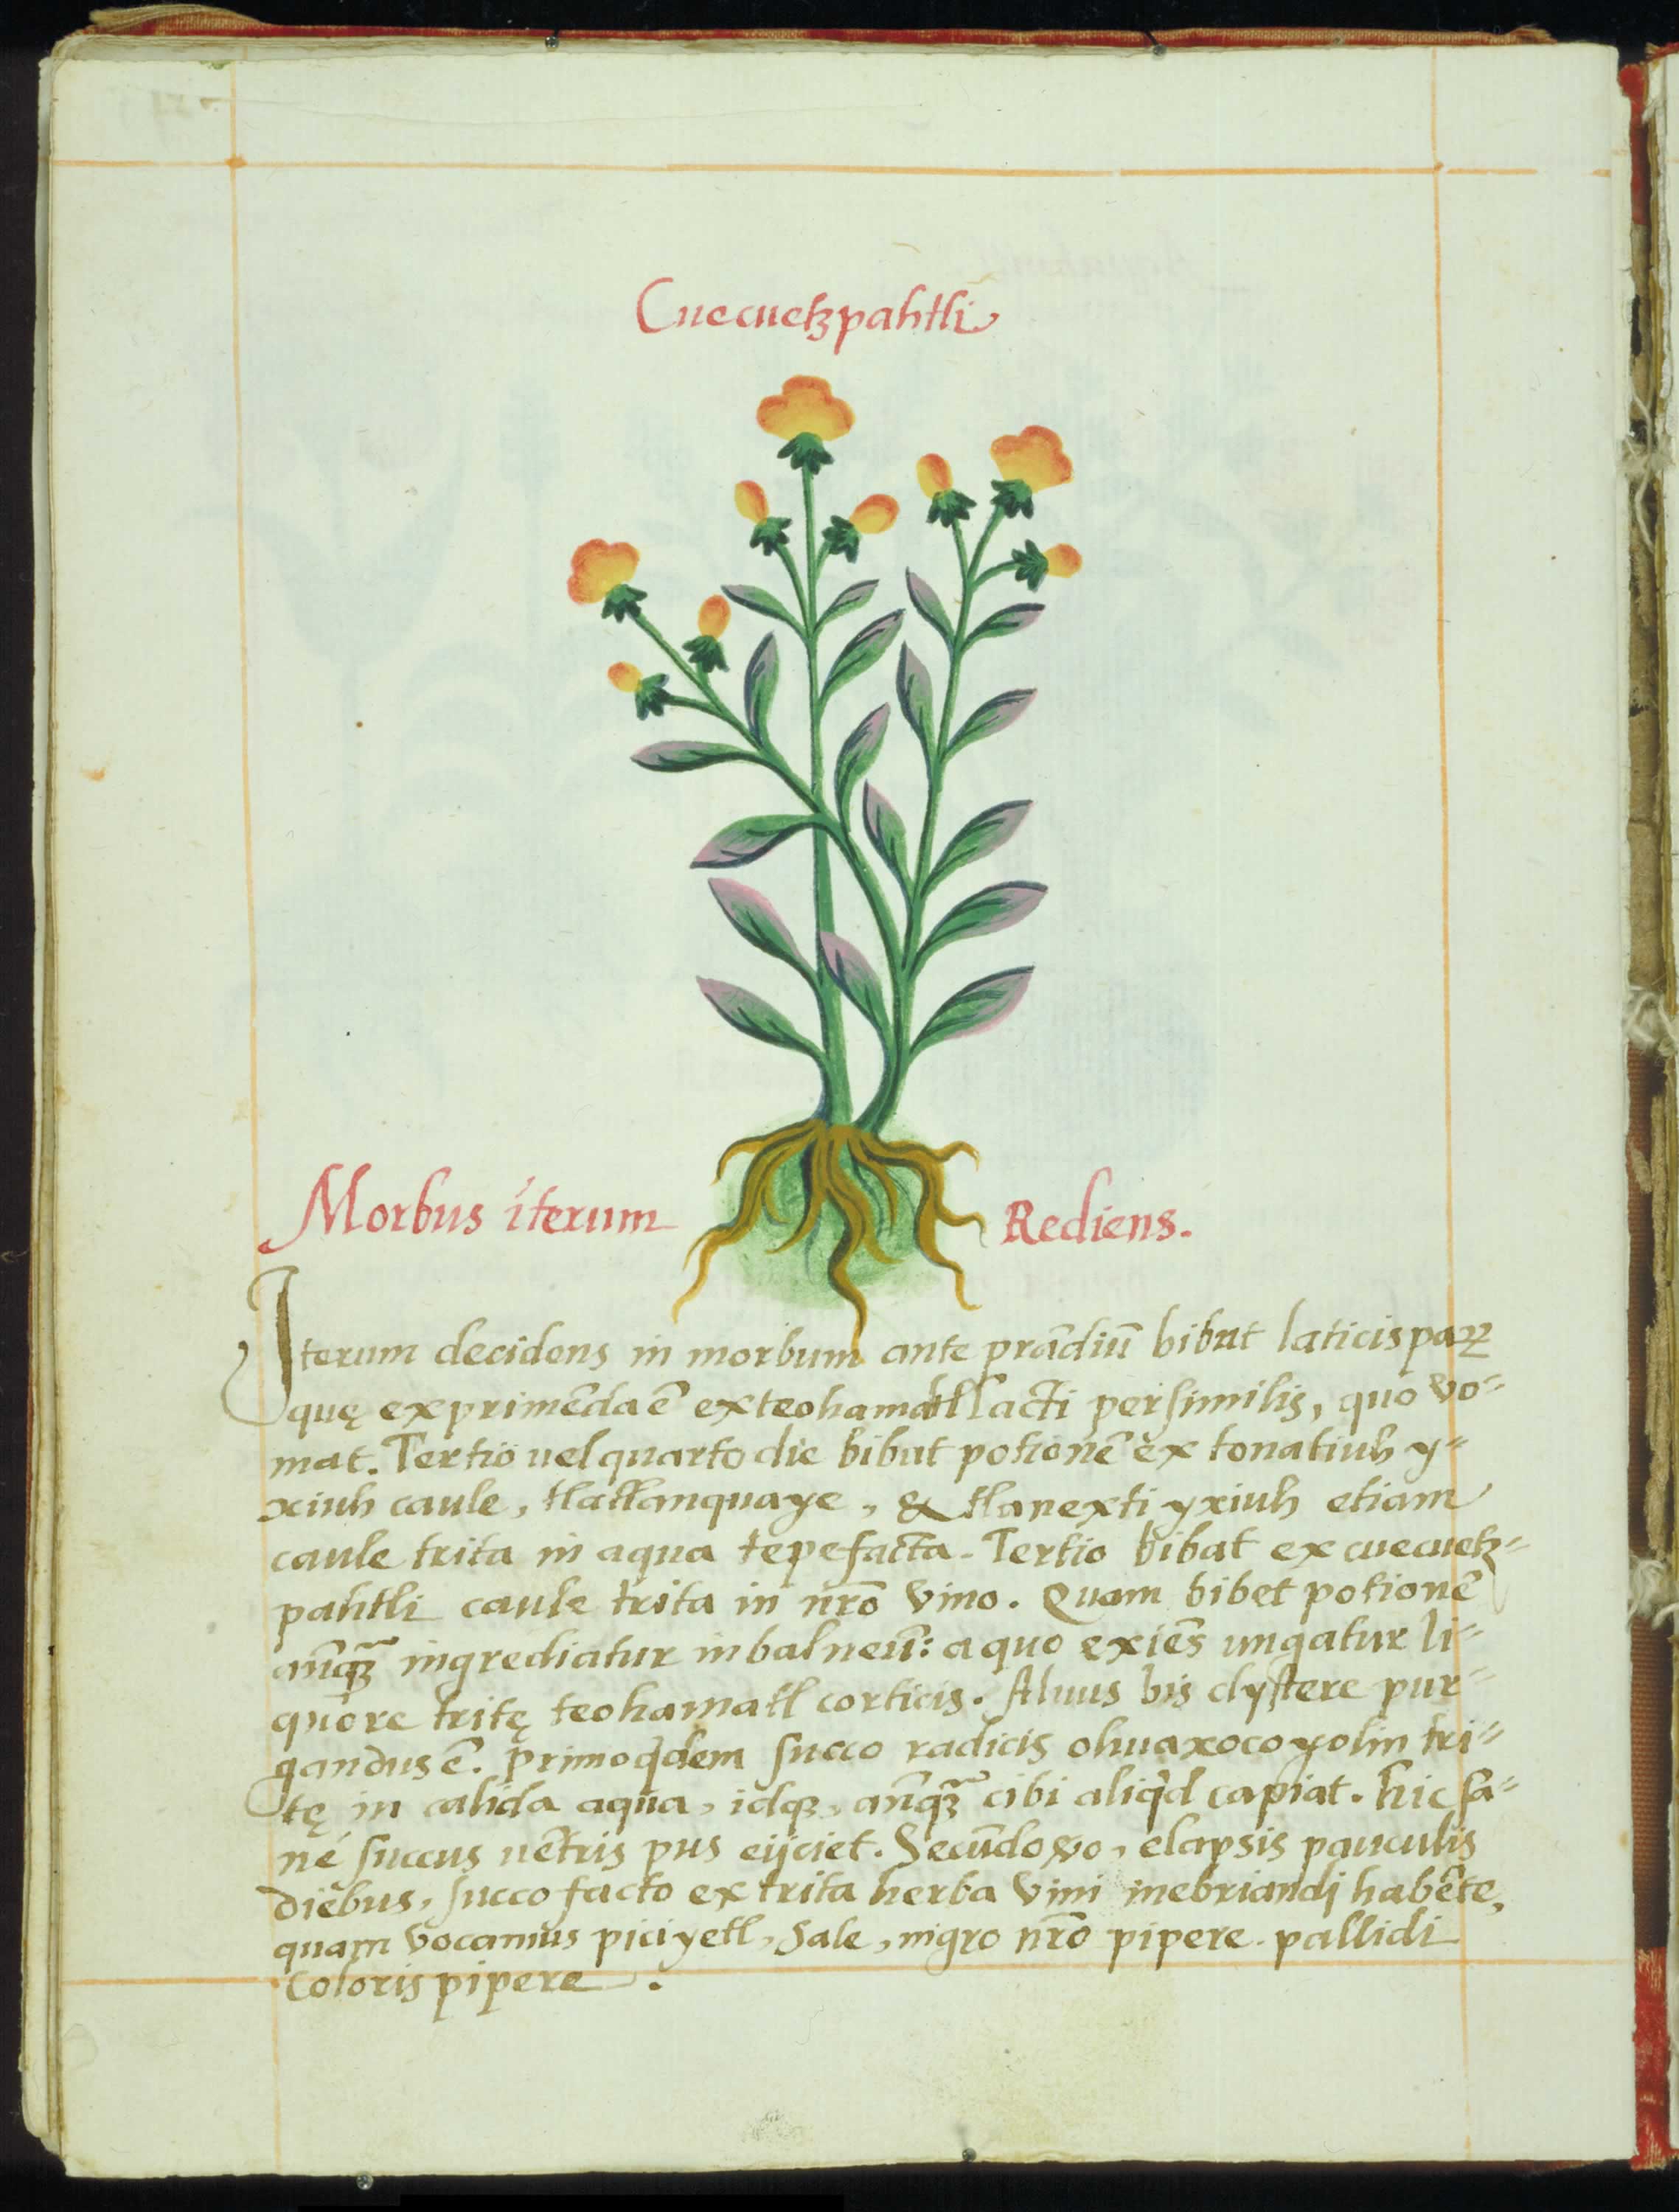 Cuecuetzpahtli
Morbus iterum Rediens.
Iterum decidens in morbum ante prādiū bibat laticis parꝝ
quę exprimēda ē ex teohamatl lacti persimilis, quo vo=
mat. Tertio uel quarto die bibat potionē ex tonatiuh y=
xiuh caule, tlatlanquaye, & tlanexti yxiuh etiam
caule trita in aqua tepefacta. Tertio bibat ex cuecuetz=
pahtli caule trita in nr̄o vino. Quam bibet potionē
anꝙ̄ ingrediatur in balneū: a quo exiēs ungatur li=
quore tritę teohamatl corticis. Aluus bis clystere pur=
gandus ē. Primo qdem succo radicis ohuaxocoyolin tri=
tę in calida aqua, idqꝫ, anꝙ̄ cibi aliqd capiat. hic sa=
né succus uētris pus eijciet. Secūdo vo, elapsis pauculis
diebus, succo facto ex trita herba vim inebriandj habēte,
quam vocamus piciyetl, Sale, nigro nr̄o pipere. pallidi
coloris pipere.